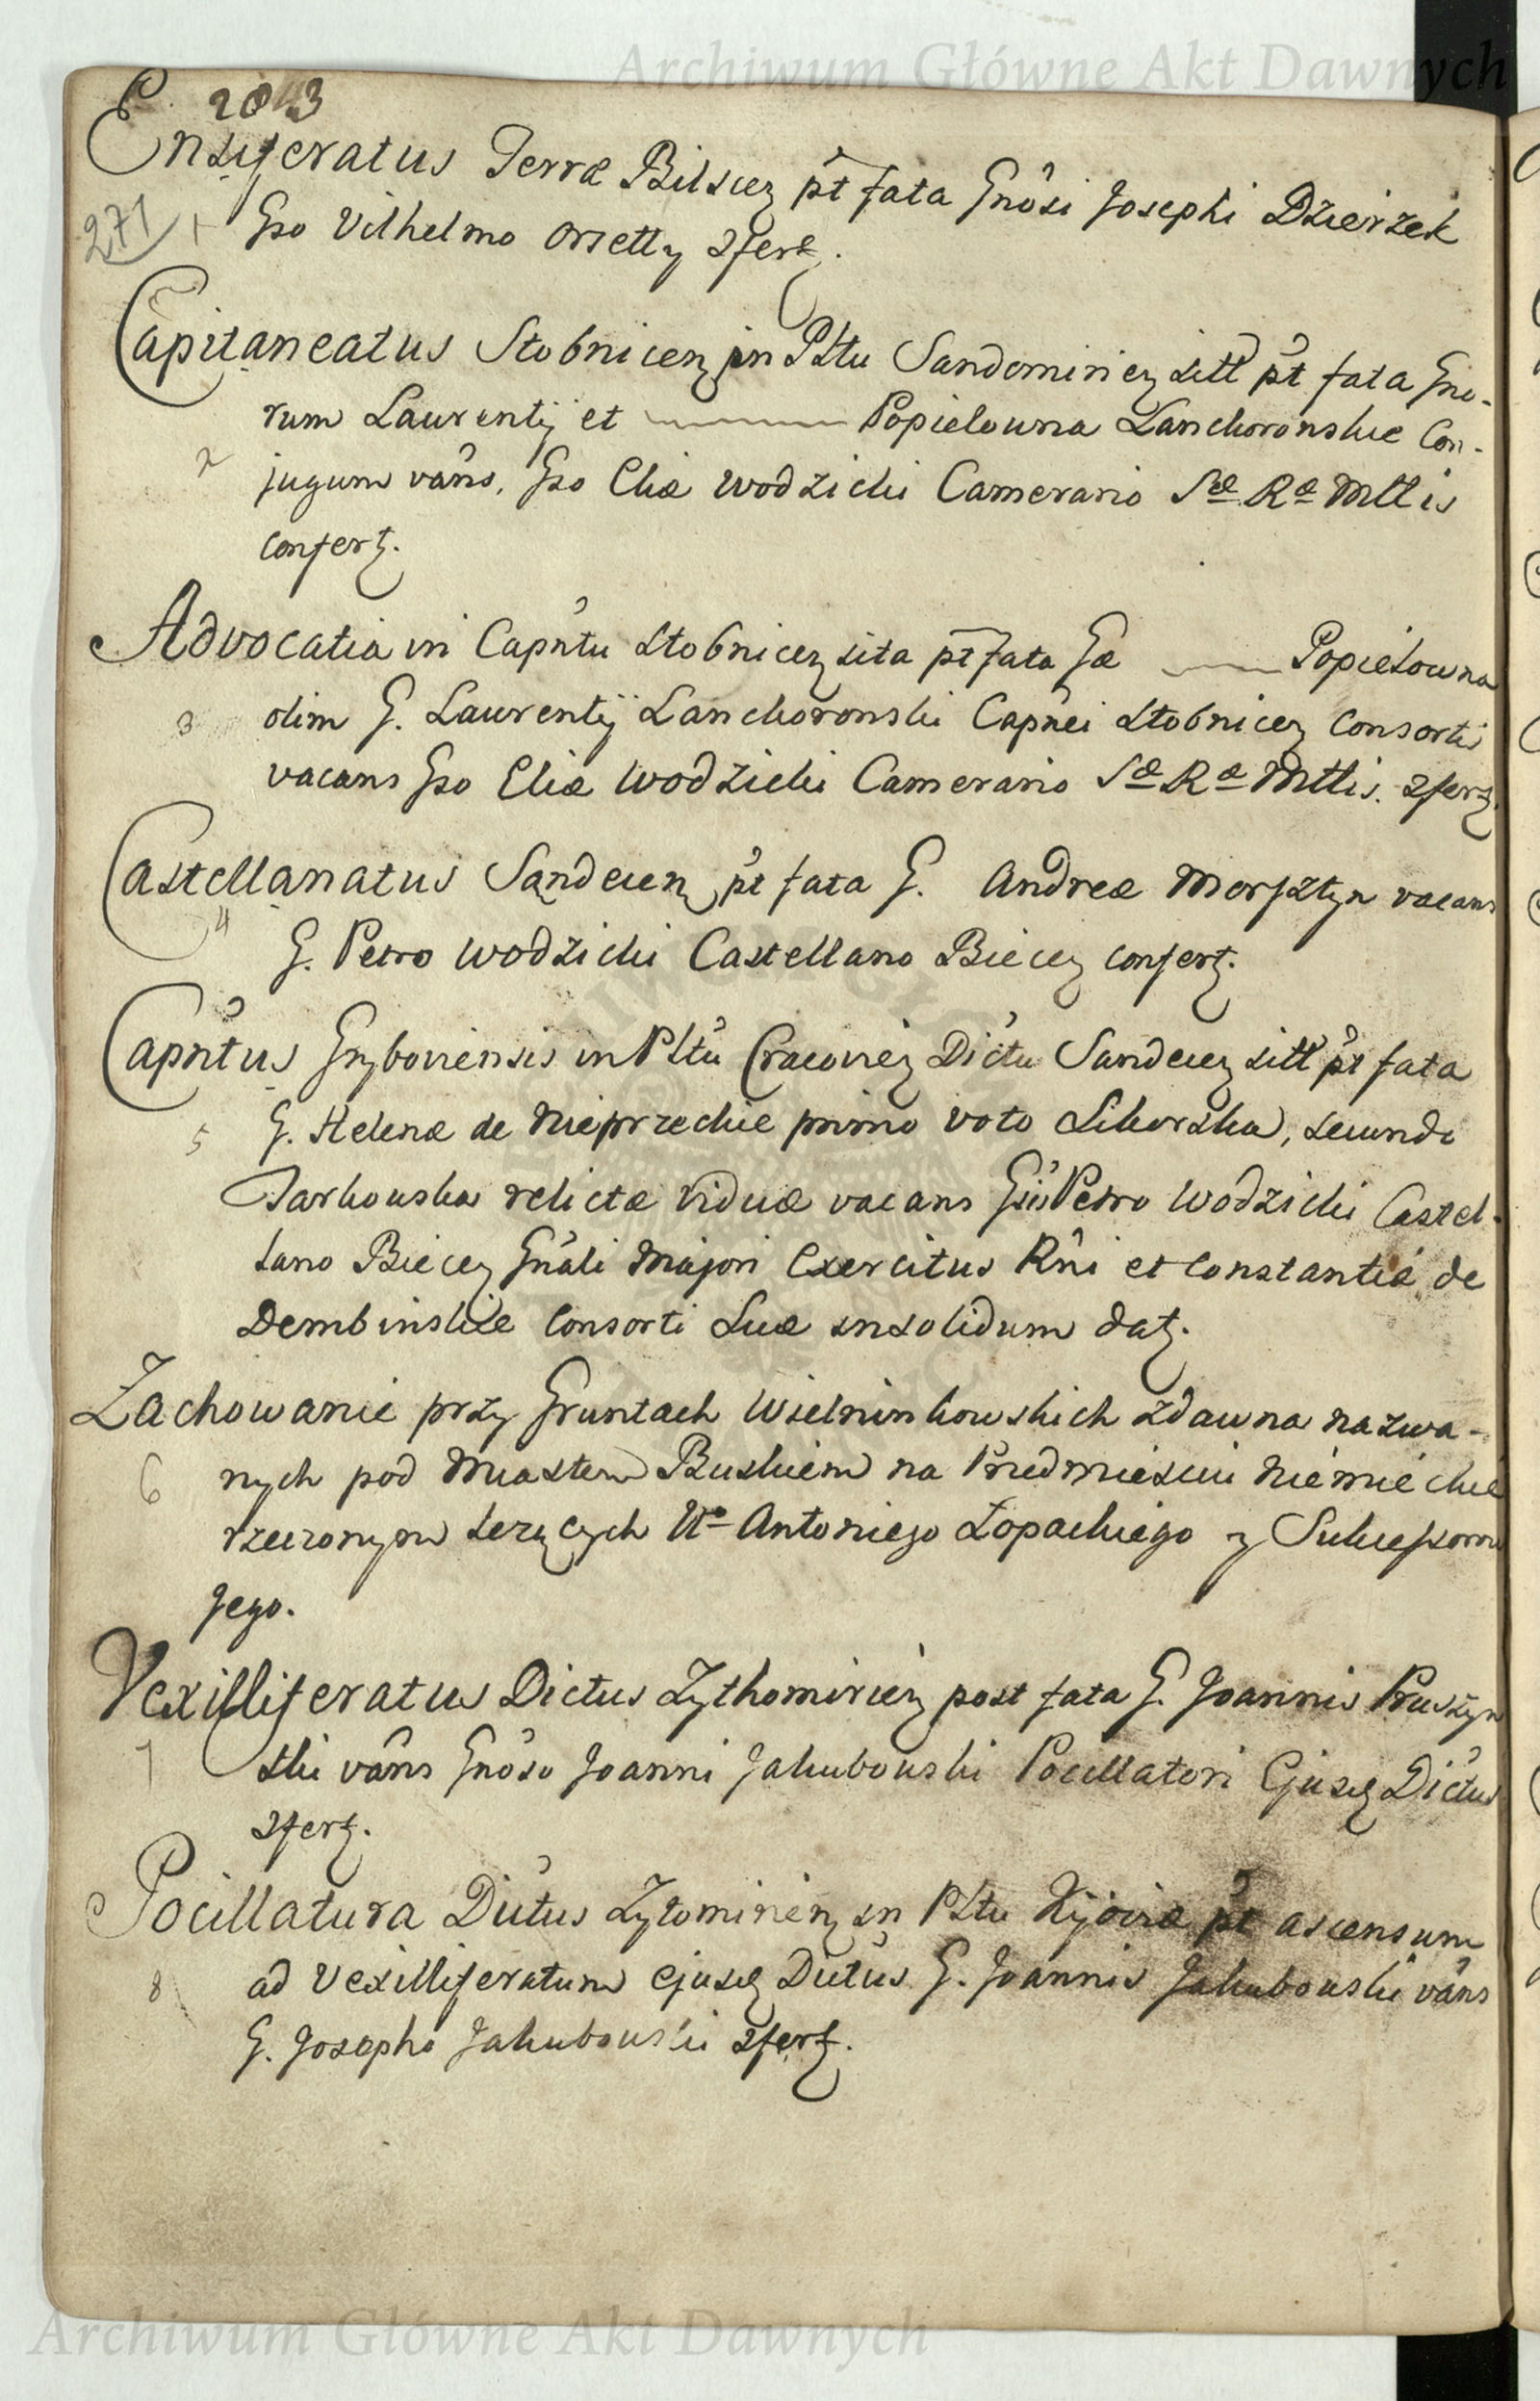 Archiwum Główne Akt Dawnych
2843
Ensiferatus Terræ Bilscen pt fata Gnosi Josephi Dzierżek
271 1 Gso Vilhelmo Orsetty 2fert.
Capitaneatus Stobnicen in Pltu Sandomirien sitt pt fata Gno-
rum Laurentij et Popielowna Lanckoronskie Con-
2 jugum vans, Gso Eliæ Wodzicki Camerario Sæ Ræ Mttis
confert.
Advocatia in Capntu Stobnicen sita pt fata Gæ Popielowna
3 olim G. Laurentij Lanckoronski Capnei Stobnicen Consortis
vacans Gso Eliæ Wodzicki Camerario Sæ Ræ Mttis. 2fert.
Castellanatus Sandecen pt fata G. Andreæ Morsztyn vacans
4 G. Petro Wodzicki Castellano Biecen confert.
Capntus Gryboviensis in Pltu Cracovien Dictu Sandecen sitt pt fata
5 G. Helenæ de Nieprzeckie primo voto Sikorska, secundo
Jarkouska relictæ viduæ vacans Gsis Petro Wodzicki Castel-
lano Biecen Gnali Majori Exercitus Rni et Constantiæ de
Dembinskie Consorti Suæ insolidum dat.
Zachowanie przy Gruntach Wielninkowskich zdawna nazwa-
6 nych pod Miastem Buskiem na Przedmiesciu Niemieckie
rzeczonym lezących Uo Antoniego Łopackiego y Sukcessorow
Jego.
Vexilliferatus Dictus Zythomirien post fata G. Joannis Pruszyn
7 ski vans Gnoso Joanni Jakubouski Pocillatori Ejusd Dictus
2fert.
Pocillatura Dictus Zytomirien in Pltu Kijoviæ pt ascensum
8 ad Vexilliferatum ejusd Dictus G. Joannis Jakubouski vans
G. Josepho Jakubouski 2fert.
Archiwum Główne Akt Dawnych